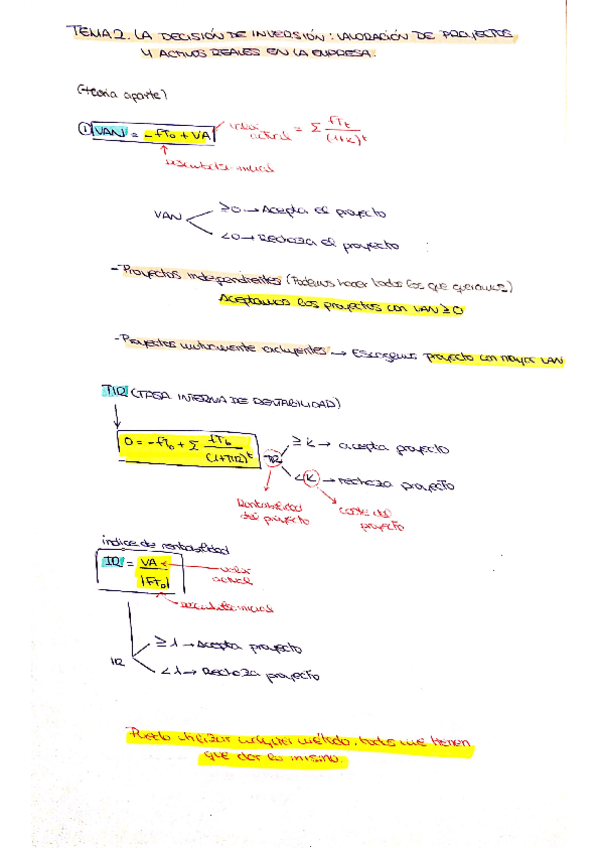 TEMA 2. LA DECISIÓN DE INVERSIÓN: VALORACIÓN DE PROYECTOS
Y ACTIVOS REALES EN LA EMPRESA.
(teoría aparte)
① VAN = -FT₀ + VA → valor actual = Σ FTt / (1+k)^t
desembolso inicial
VAN
≥0 → Acepta el proyecto
<0 → Rechaza el proyecto
- Proyectos independientes (Podemos hacer todos los que queramos)
Aceptamos los proyectos con VAN ≥ 0
- Proyectos mutuamente excluyentes → Escogemos proyecto con mayor VAN
TIR (TASA INTERNA DE RENTABILIDAD)
0 = -FT₀ + Σ FTt / (1+TIR)^t
TIR
≥ k → acepta proyecto
< k → rechaza proyecto
Rentabilidad del proyecto
coste del proyecto
índice de rentabilidad
IR = VA / |FT₀|
valor actual
desembolso inicial
IR
≥ 1 → Acepta proyecto
< 1 → Rechaza proyecto
Puedo utilizar cualquier método, todos me tienen
que dar lo mismo.